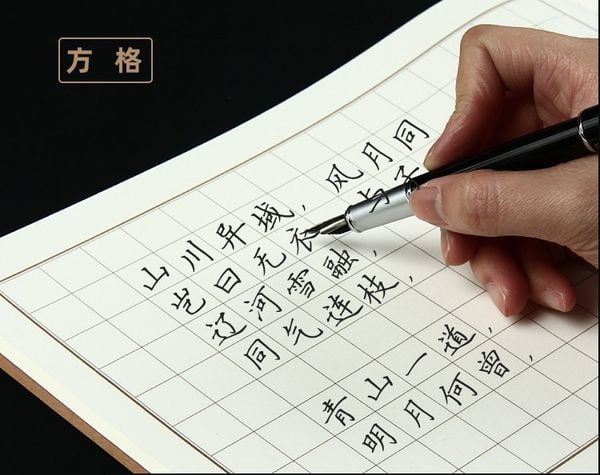 方格
山川异域，风月同
岂曰无衣 与子
辽河雪融，
同气连枝，
青山一道，
明月何曾，